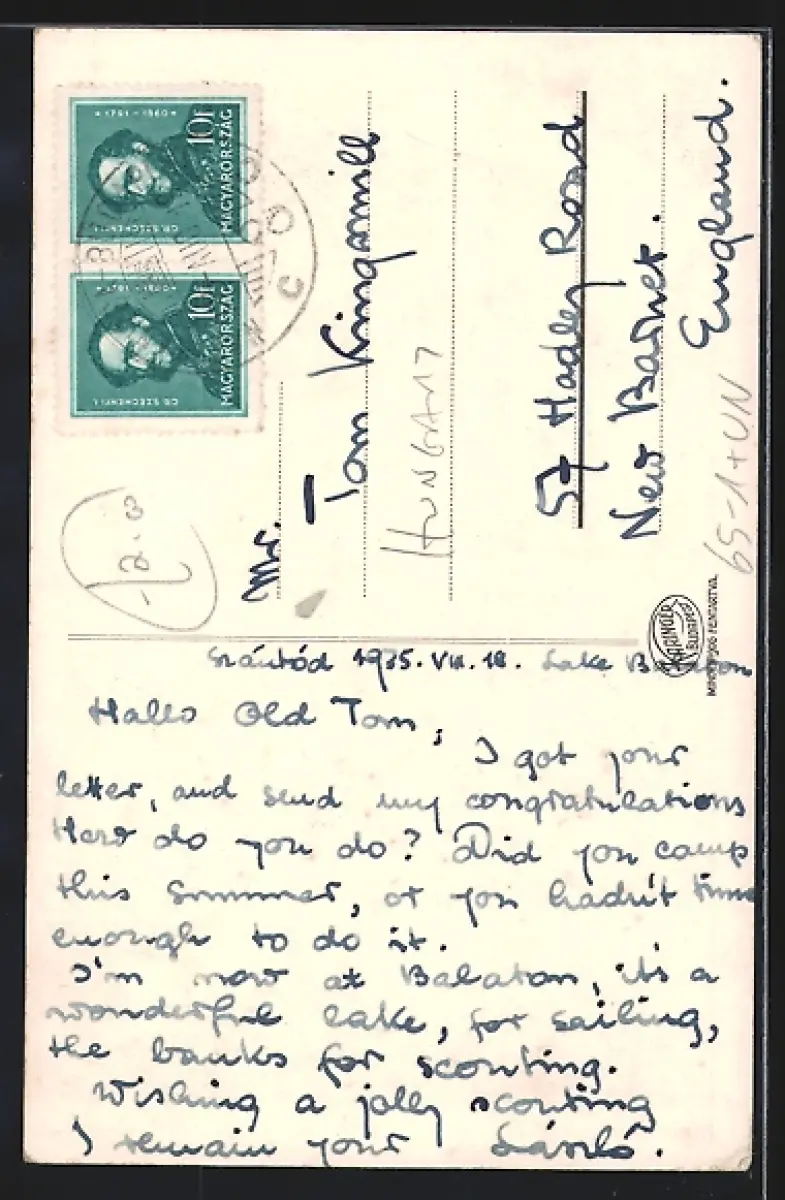 10f
MAGYARORSZÁG
GR. SZÉCHENYI I.
* 1791 - 1860 *
10f
MAGYARORSZÁG
GR. SZÉCHENYI I.
Mr. Tom Kingsmill
HUNGARY
57 Hadley Road
New Barnet.
England.
65-1+UN
KARINGER
BUDAPEST
Szántód 1935. VIII. 18. Lake Balaton
Hallo Old Tom,
I got your
letter, and send my congratulations
How do you do? Did you camp
this summer, or you hadn't time
enough to do it.
I'm now at Balaton, it's a
wonderful lake, for sailing,
the banks for scouting.
Wishing a jolly scouting
I remain your László.